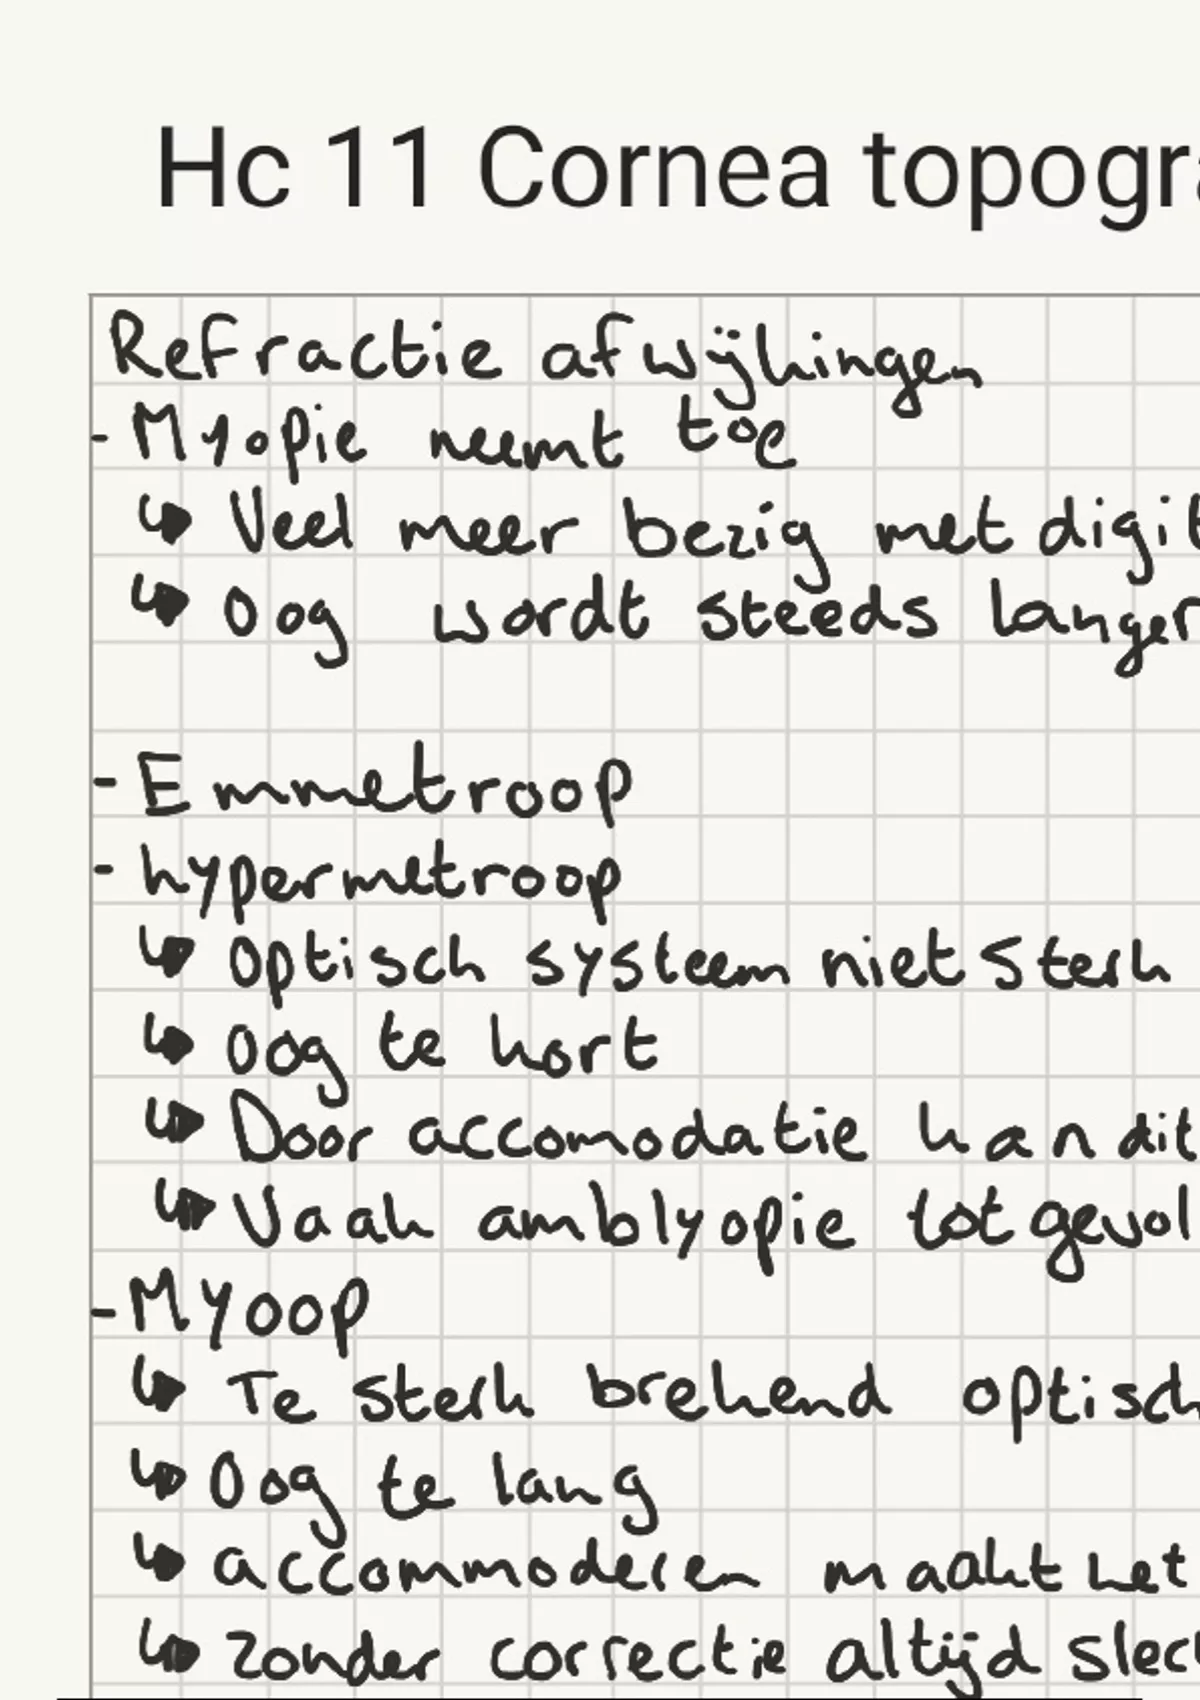 Hc 11 Cornea topogra
Refractie afwijkingen
- Myopie neemt toe
↳ Veel meer bezig met digit
↳ Oog wordt steeds langer
- Emmetroop
- hypermetroop
↳ Optisch systeem niet sterk
↳ Oog te kort
↳ Door accomodatie kan dit
↳ Vaak amblyopie tot gevol
- Myoop
↳ Te sterk brekend optisch
↳ Oog te lang
↳ accommoderen maakt het
↳ Zonder correctie altijd slec